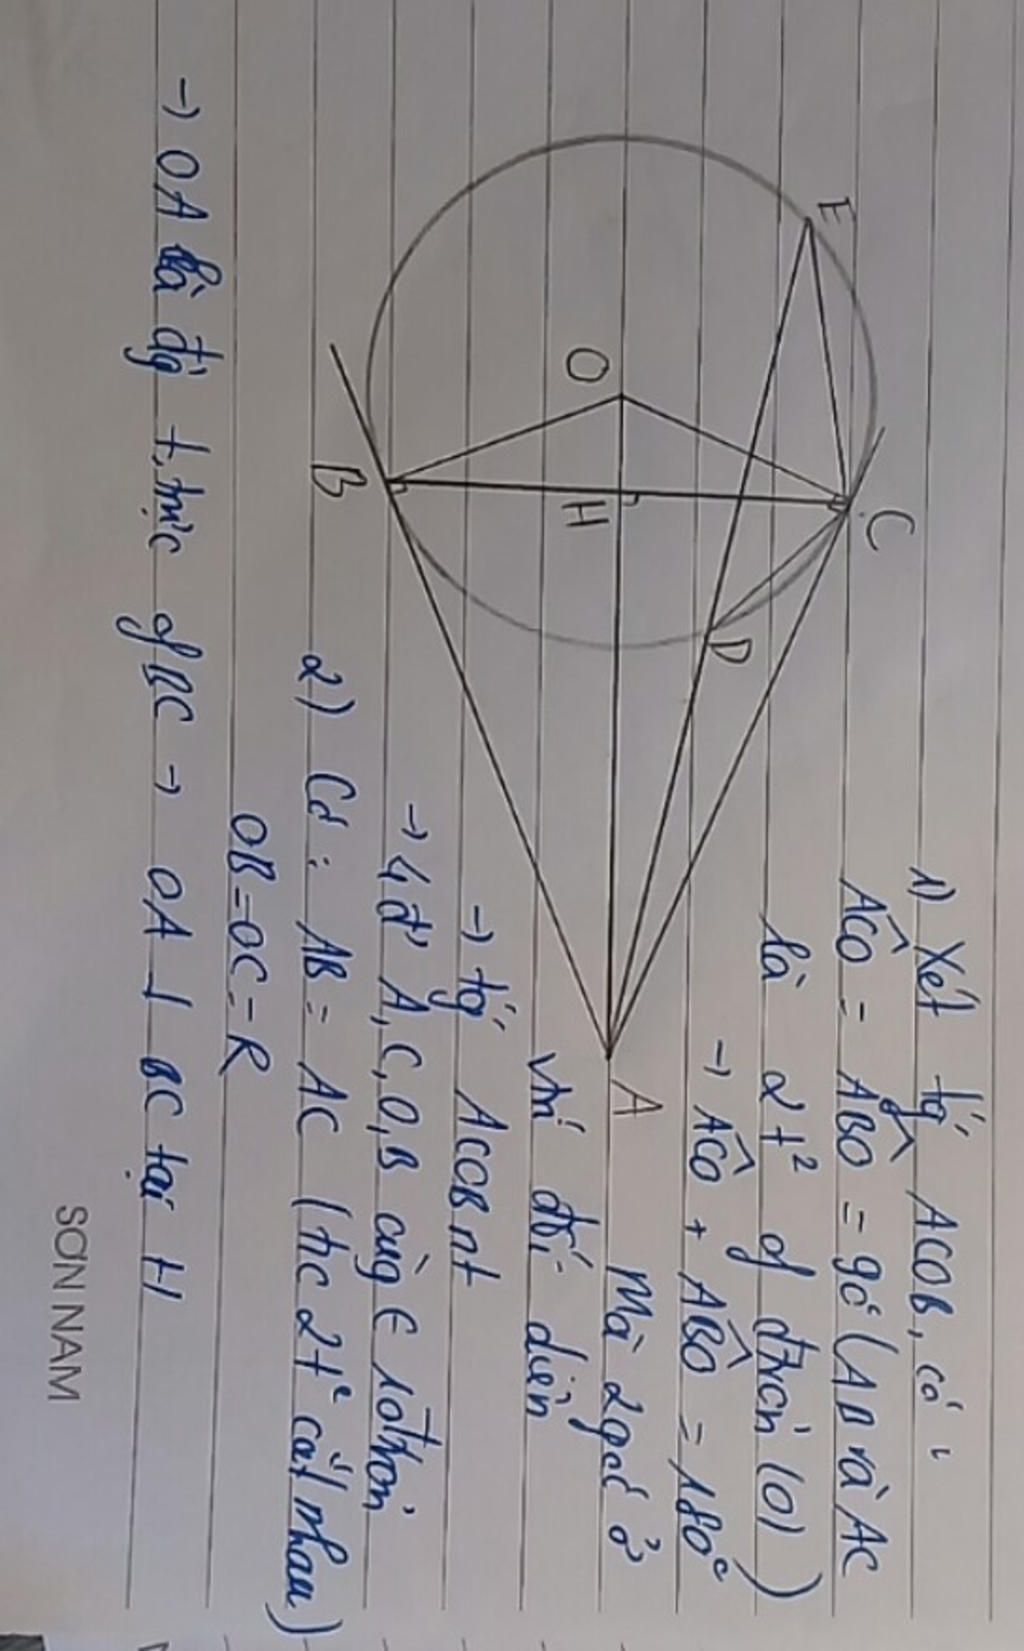 E
C
O
H
D
B
A
1) Xét tg ACOB, có:
AĈO = AB̂O = 90° (AB và AC
là 2t² of đtròn (O))
→ AĈO + AB̂O = 180°
Mà 2 góc ở
vtrí đối diện
→ tg ACOB nt
→ 4đ' A, C, O, B cùng ∈ 1 đtròn
2) Có: AB = AC (t/c 2t² cắt nhau)
OB = OC = R
→ OA là đg t,trực of BC → OA ⊥ BC tại H
SƠN NAM